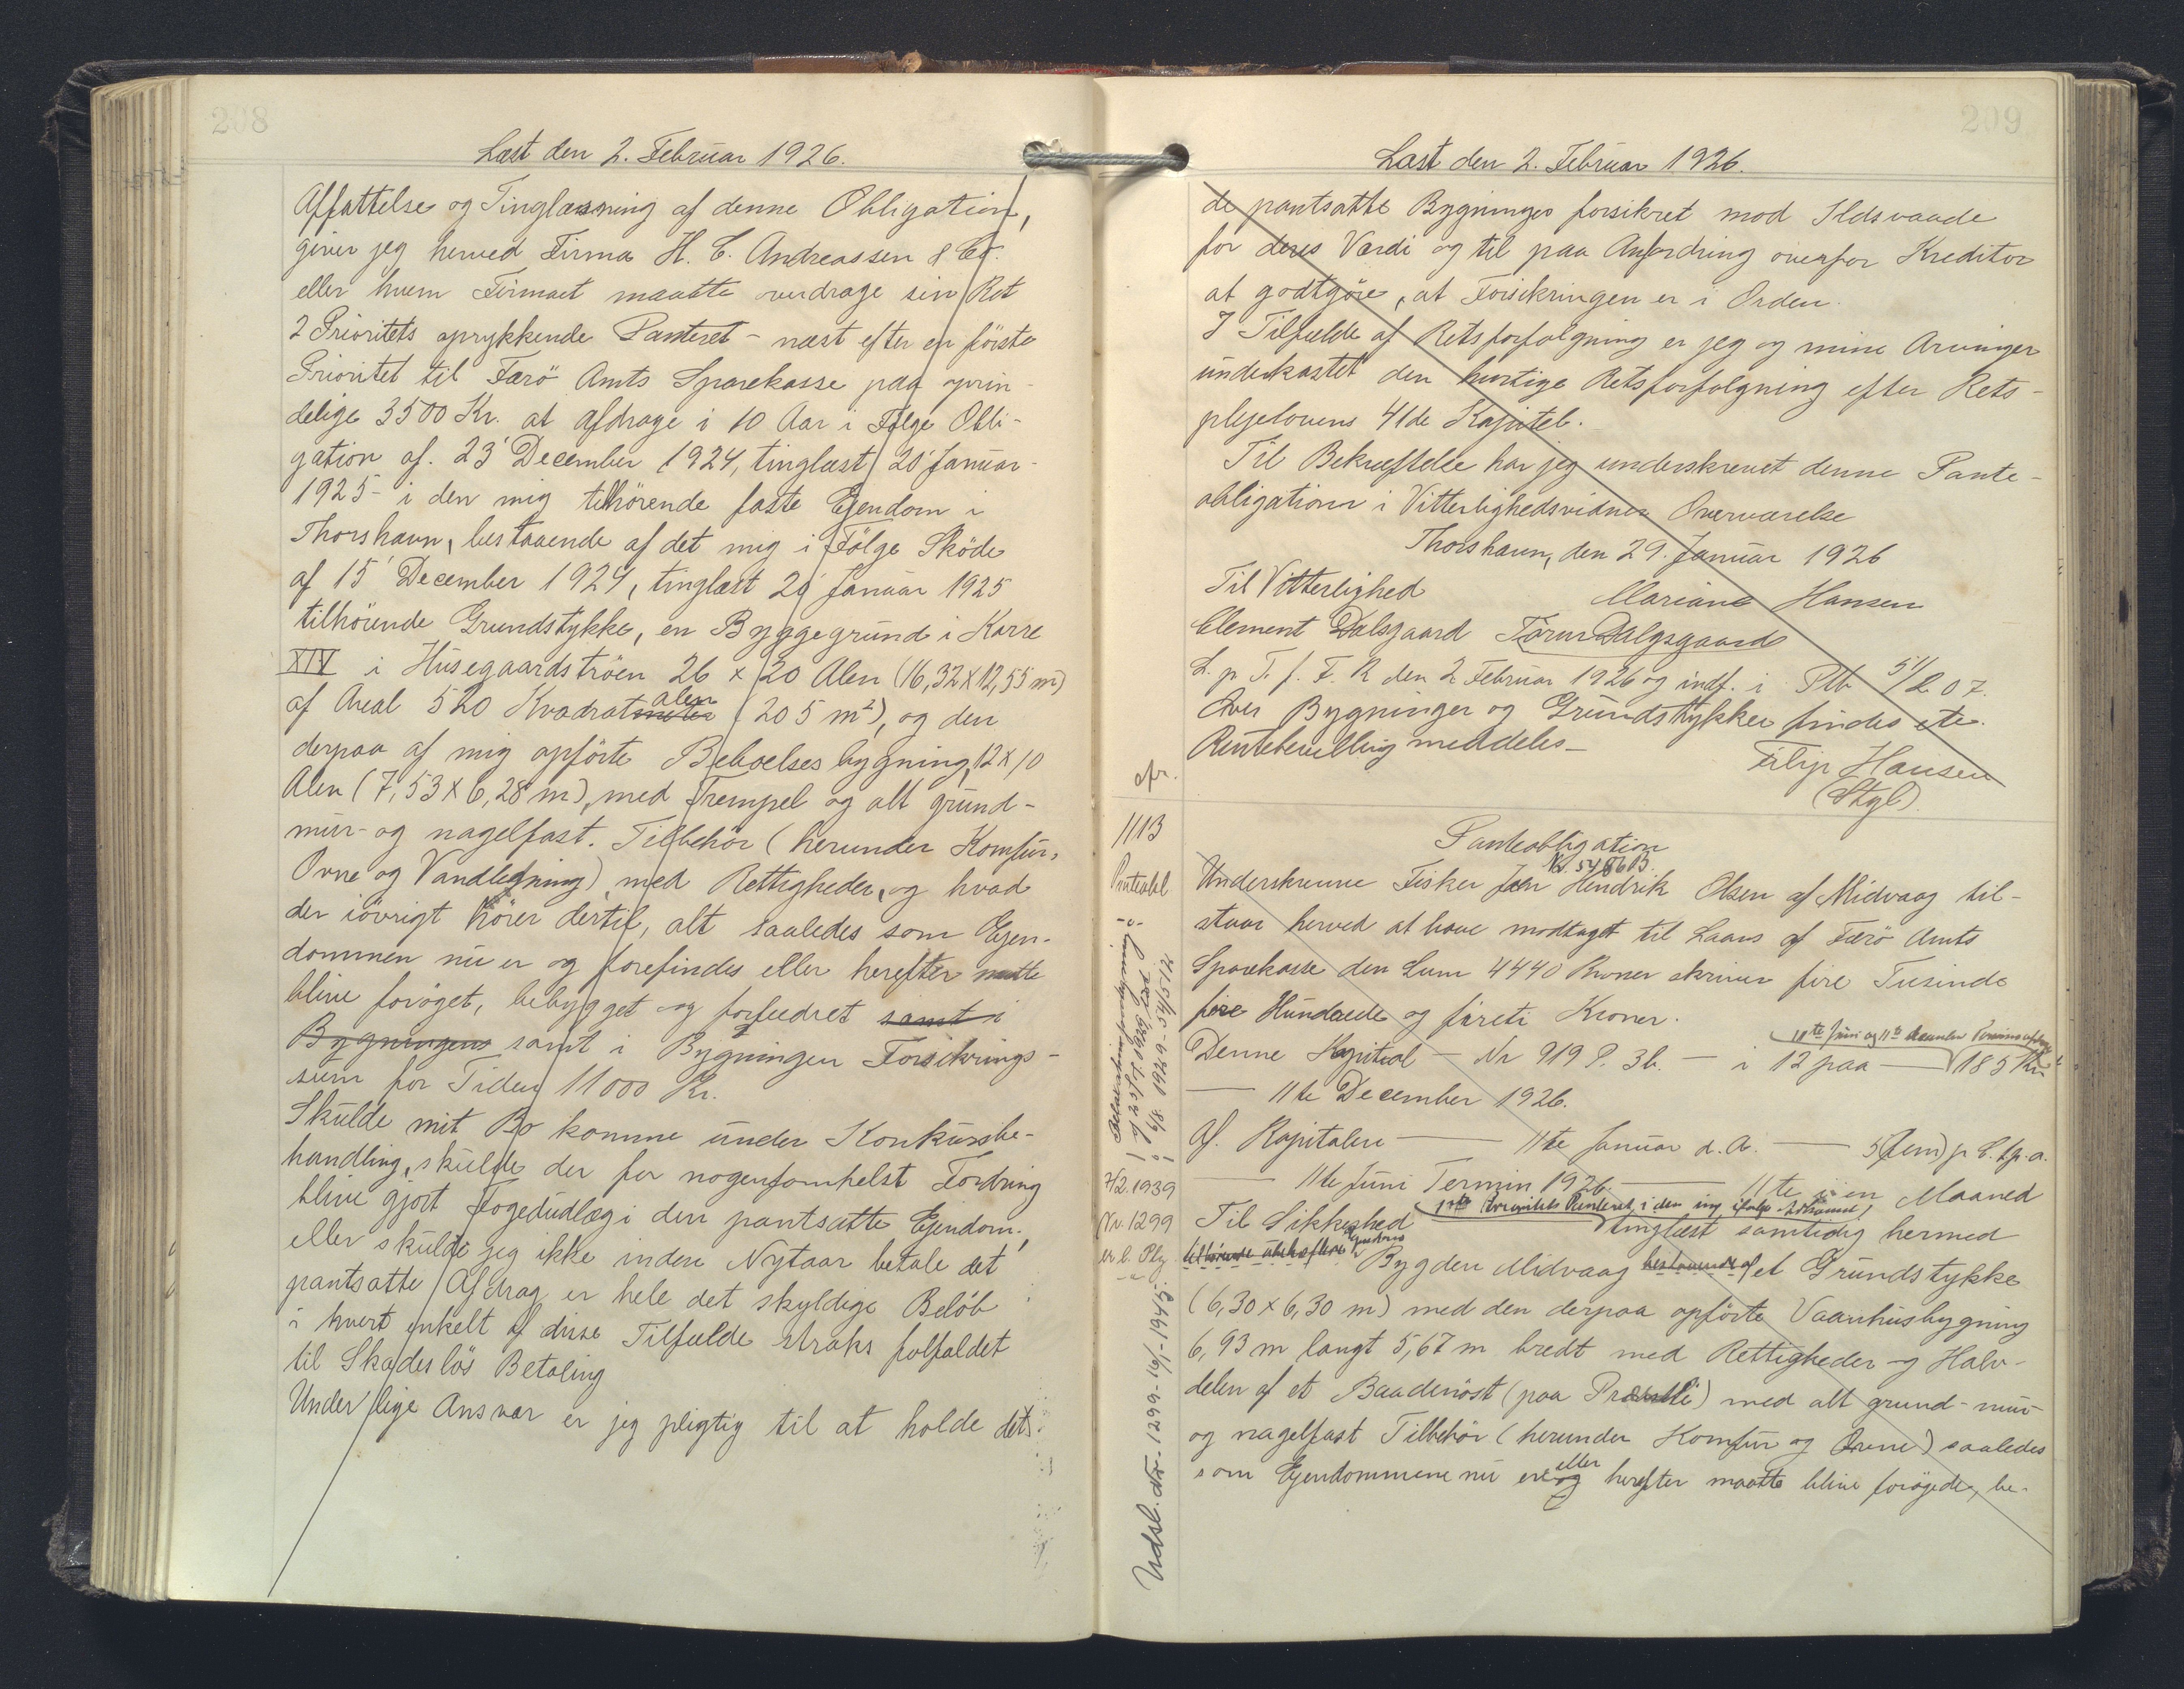 208
Læst den 2. Februar 1926.
Affattelse og Tinglæsning af denne Obligation,
giver jeg herved Firma H. C. Andreassen & Co.
eller hvem Firmaet maatte overdrage sin Ret
2 Prioritets oprykkende Panteret - næst efter en förste
Prioritet til Færö Amts Sparekasse paa oprin-
delige 3500 Kr. at afdrage i 10 Aar i Følge Obli-
gation af. 23' December 1924, tinglæst 20' Januar
1925 - i den mig tilhörende faste Ejendom i
Thorshavn, bestaaende af det mig i Følge Sköde
af 15' December 1924, tinglæst 20' Januar 1925
tilhörende Grundstykke, en Byggegrund i Karre
XIV i Husegaardströen 26 x 20 Alen (16,32 x 12,55 m)
af Areal 520 Kvadratmeter alen (205 m²), og den
derpaa af mig opförte Beboelsesbygning, 12 x 10
Alen (7,53 x 6,28 m), med Trempel og alt grund-
mur- og nagelfast. Tilbehör (herunder Komfur,
Ovne og Vandledning) med Rettigheder, og hvad
der iövrigt hörer dertil, alt saaledes som Ejen-
dommen nu er og forefindes eller herefter maatte
blive foröget, bebygget og forbedret samt i
Bygningens samt i Bygningen Forsikrings-
sum for Tiden 11000 Kr.
Skulde mit Bo komme under Konkursbe-
handling, skulde der for nogensomhelst Fordring
blive gjort Fogedudlæg i den pantsatte Ejendom,
eller skulde jeg ikke inden Nytaar betale det
pantsatte Afdrag er hele det skyldige Belöb
i hvert enkelt af disse Tilfælde straks forfaldet
til Skadeslös Betaling
Under lige Ansvar er jeg pligtig til at holde det
209
Læst den 2. Februar 1926.
de pantsatte Bygninger forsikret mod Ildsvaade
for deres Værdi og til paa Anfordring overfor Kreditor
at godtgöre, at Forsikringen er i Orden.
I Tilfælde af Retsforfølgning er jeg og mine Arvinger
underkastet den hurtige Retsforfølgning efter Rets-
plejelovens 41de Kapitel.
Til Bekræftelse har jeg underskrevet denne Pante-
obligation i Vitterlighedsvidners Overværelse
Thorshavn, den 29. Januar 1926
Til Vitterlighed Mariane Hansen
Clement Dalsgaard
L. p. T. f. F. R den 2 Februar 1926 og indf. i Ptb 51/207.
Over Bygninger og Grundstykker findes ete.
meddeles -
Filip Hansen
(Stgl).
cfr.
1113
Panteobligation
Nr. 5486 B.
Panteobl
Underskrevne Fisker Hendrik Olsen af Midvaag til-
staar herved at have modtaget til Laans af Færö Amts
Sparekasse den Sum 4440 Kroner skriver fire Tusinde
fire Hundrede og fireti Kroner.
11te Juni og 11te December Termins
Denne Kapital - Nr 919 P. 36. - i 12 paa - 185 Kr
- 11te December 1926.
Af. Kapitalen - 11te Januar d.A. - 5 (fem) p. C. p.a.
- 11te Juni Termin 1926 - 11te i en Maaned
1ste Prioritets Panteret, i den mig ifölge
Til Sikkerhed tinglæst samtidig hermed
Bygden Midvaag bestaaende af et Grundstykke
(6,30 x 6,30 m) med den derpaa opförte Vaanhusbygning
6,93 m langt 5,67 m bredt med Rettigheder og Halv-
delen af et Baadenöst (paa ) med alt grund- mur-
og nagelfast Tilbehör (herunder Komfur og Ovne) saaledes
som Ejendommene nu ere og eller herefter maatte blive forögede, be-
4/2.1939
Nr. 1299
Udsl. Nr. 1299 - 16/1 - 1945.